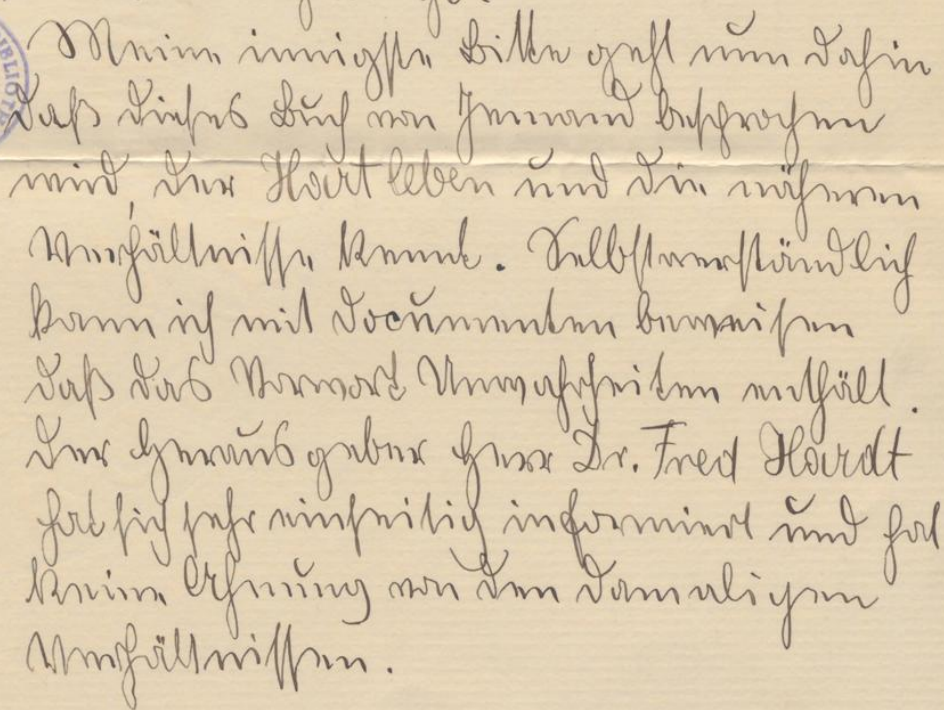 Meine innigste Bitte geht nun dahin
daß dieses Buch von Jemand besprochen
wird, der Hartleben und die näheren
Verhältnisse kennt. Selbstverständlich
kann ich mit Documenten beweisen
daß das Vorwort Unwahrheiten enthält.
Der Herausgeber Herr Dr. Fred Hardt
hat sich sehr einseitig informiert und hat
keine Ahnung von den damaligen
Verhältnissen.